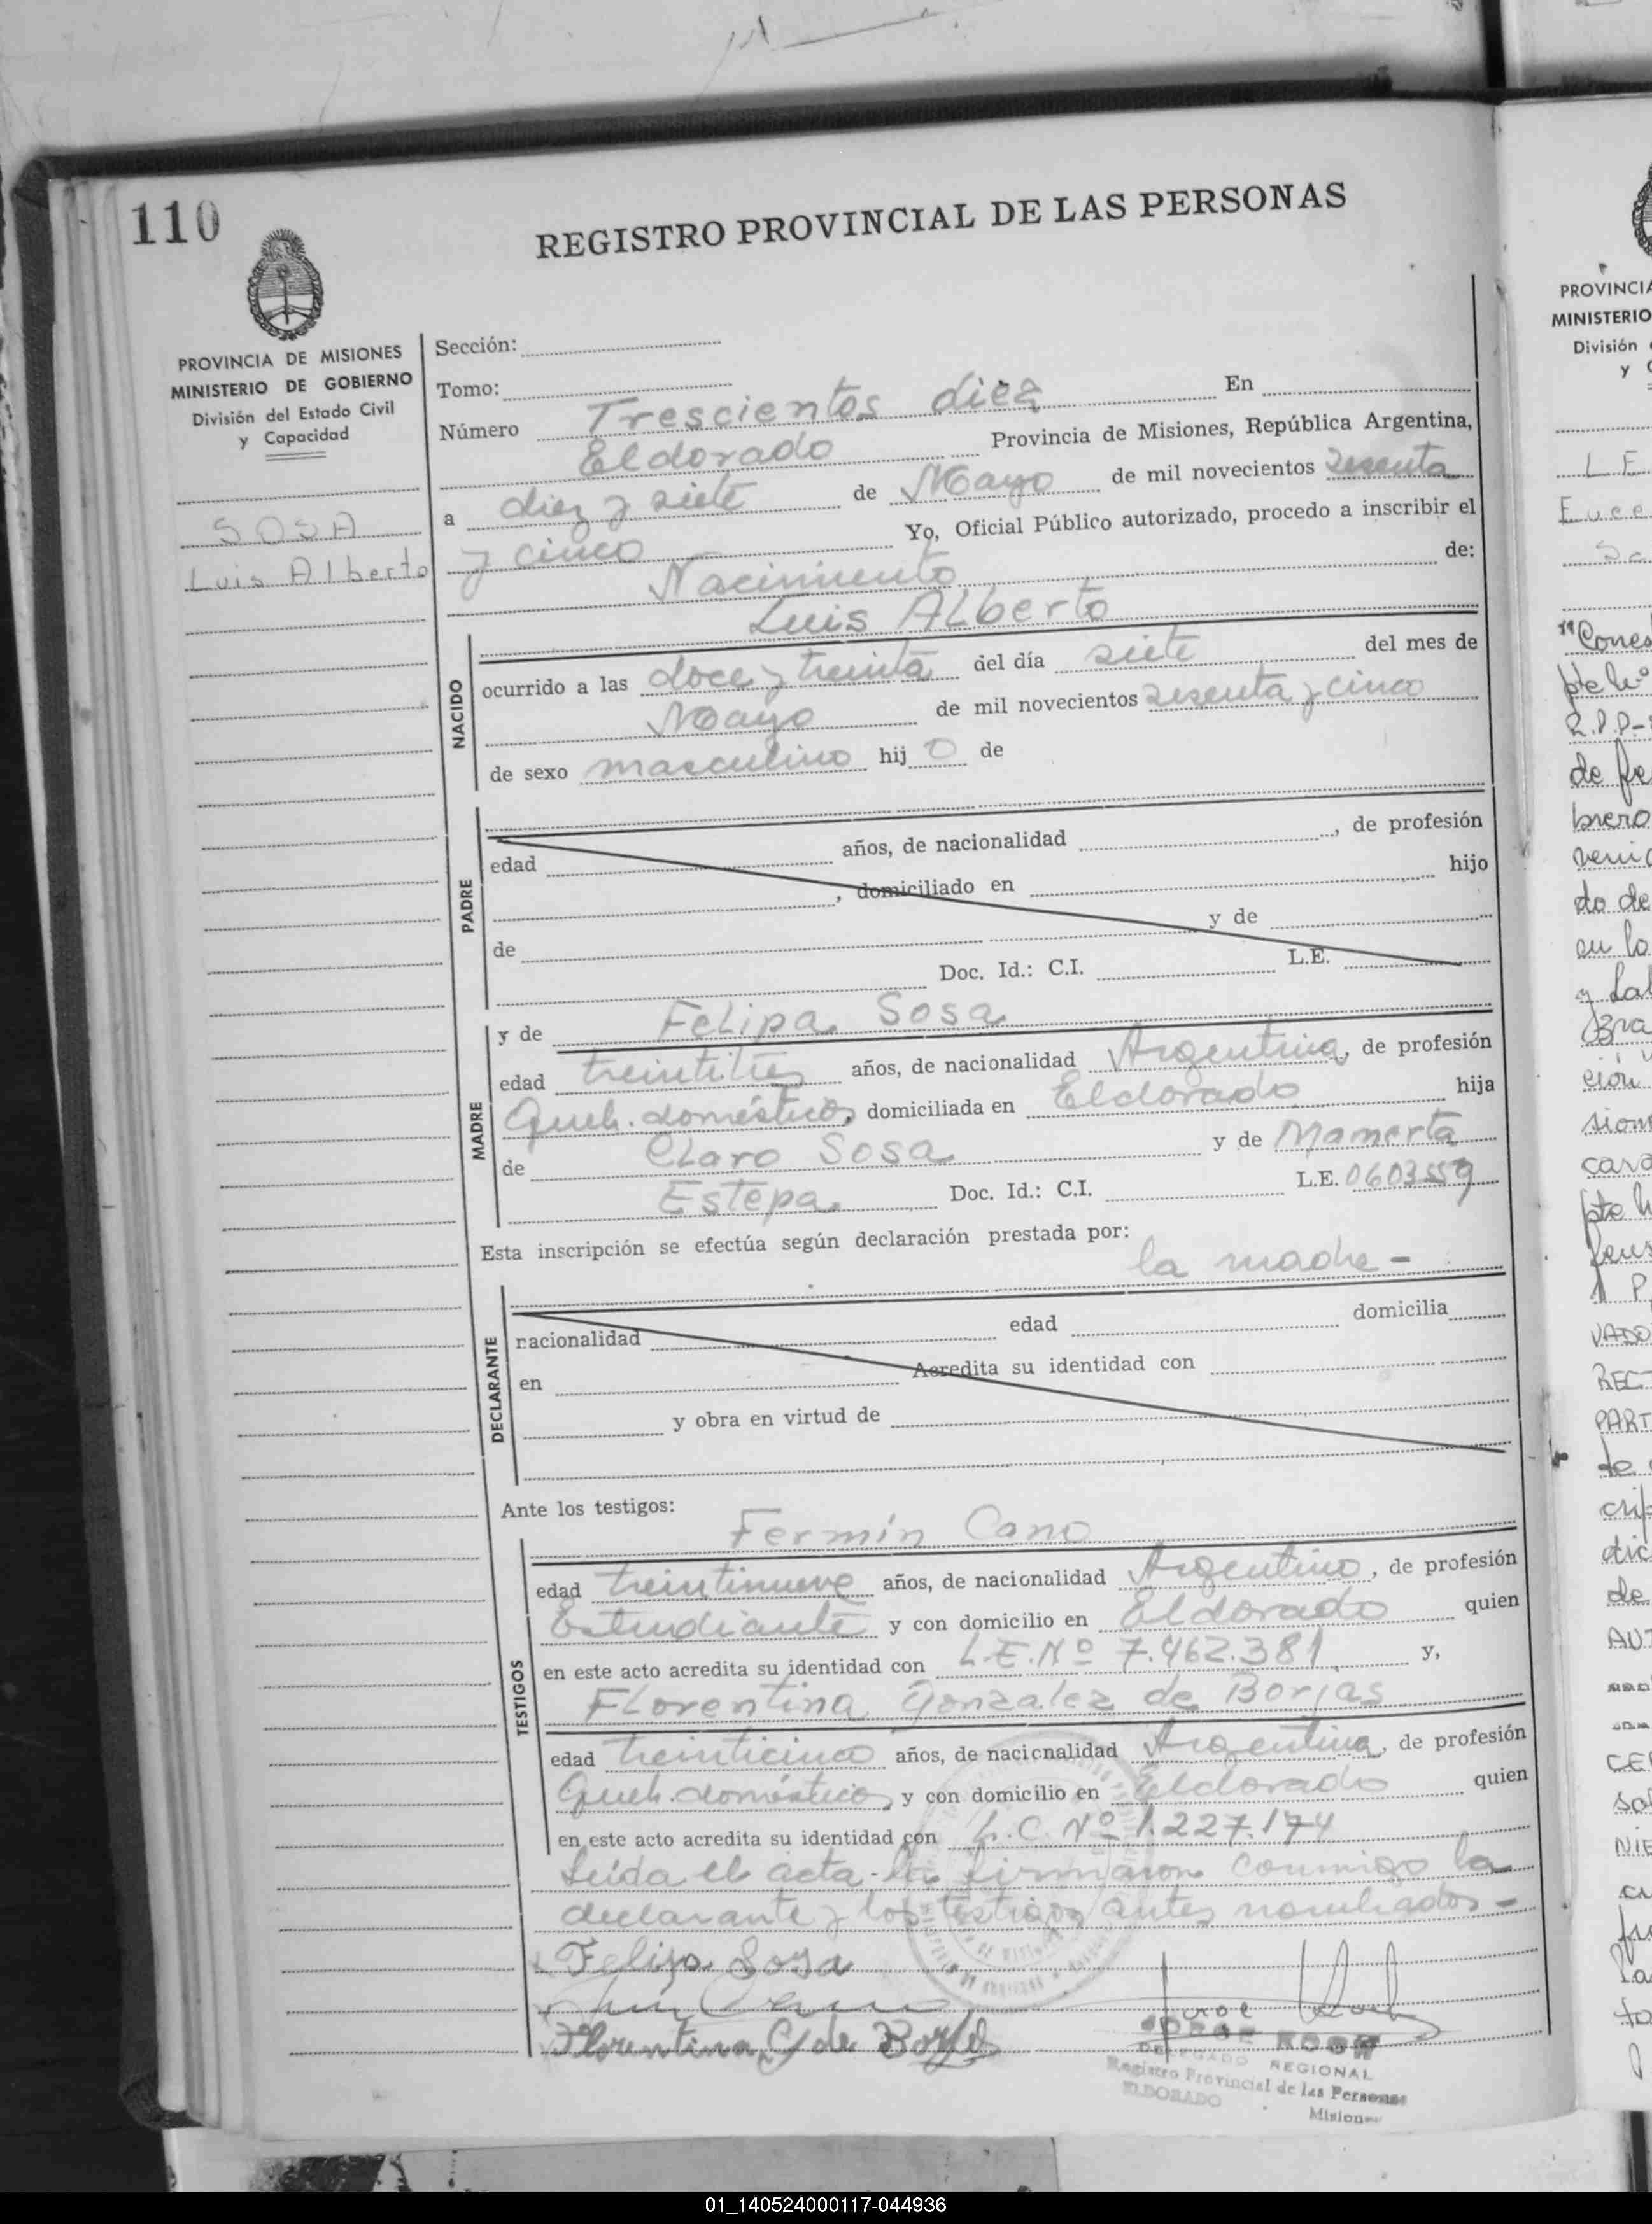 110
REGISTRO PROVINCIAL DE LAS PERSONAS
PROVINCIA DE MISIONES
MINISTERIO DE GOBIERNO
División del Estado Civil
y Capacidad
SOSA
Luis Alberto
Sección:
Tomo:
Número Trescientos diez En
Eldorado Provincia de Misiones, República Argentina,
a diez y siete de Mayo de mil novecientos sesenta
y cinco Yo, Oficial Público autorizado, procedo a inscribir el
Nacimiento de:
Luis ALberto
NACIDO
ocurrido a las doce y treinta del día siete del mes de
Mayo de mil novecientos sesenta y cinco
de sexo masculino hijo de
PADRE
edad años, de nacionalidad , de profesión
, domiciliado en hijo
de y de
Doc. Id.: C.I. L.E.
MADRE
y de FeLipa Sosa
edad treintitres años, de nacionalidad Argentina, de profesión
Queh. domésticos, domiciliada en Eldorado hija
de CLaro Sosa y de Mamerta
Estepa. Doc. Id.: C.I. L.E. 0603559
Esta inscripción se efectúa según declaración prestada por:
la madre -
DECLARANTE
nacionalidad edad domicilia
en Acredita su identidad con
y obra en virtud de
Ante los testigos:
Fermín Cano
TESTIGOS
edad treintinueve años, de nacionalidad Argentino, de profesión
Estudiante y con domicilio en Eldorado quien
en este acto acredita su identidad con L.E. Nº 7.462.381 y,
FLorentina Gonzalez de Borjas
edad treinticinco años, de nacionalidad Argentina, de profesión
Queh. domésticos, y con domicilio en Eldorado quien
en este acto acredita su identidad con L.C. Nº 1.227.174
Leída el acta la firmaron conmigo la
declarante y los testigos antes nombrados -
Felipa Sosa
Florentina G de Borjas
JORGE KOCH
DELEGADO REGIONAL
Registro Provincial de las Personas
ELDORADO
Misiones
PROVINCIA
MINISTERIO
División
y
01_140524000117-044936